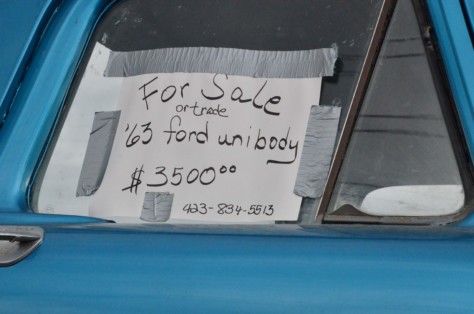 For Sale
or trade
'63 ford unibody
$3500⁰⁰
423-834-5513